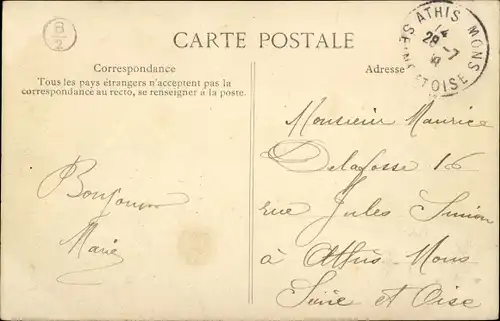 B/2
CARTE POSTALE
ATHIS MONS
14
28 -7
SEINE ET OISE
Correspondance
Tous les pays étrangers n'acceptent pas la
correspondance au recto, se renseigner à la poste.
Adresse
Bonjour
Marie
Monsieur Maurice
Delafosse 16
rue Jules Simon
à Athis-Mons
Seine et Oise